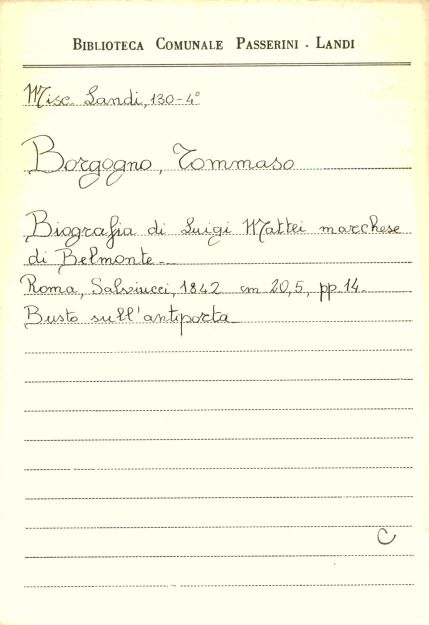 BIBLIOTECA COMUNALE PASSERINI - LANDI
Misc. Landi, 130-4°
Borgogno, Tommaso
Biografia di Luigi Mattei marchese
di Belmonte.-
Roma, Salviucci, 1842 cm 20,5, pp 14.
Busto sull'antiporta-
C